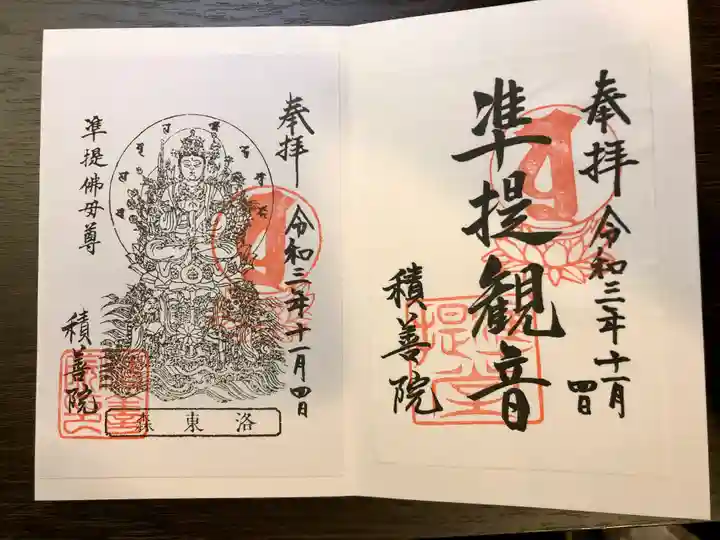 奉拝
準提観音
令和三年十一月
四日
積善院
奉拝
令和三年十一月
四日
準提佛母尊
積善院
森東洛